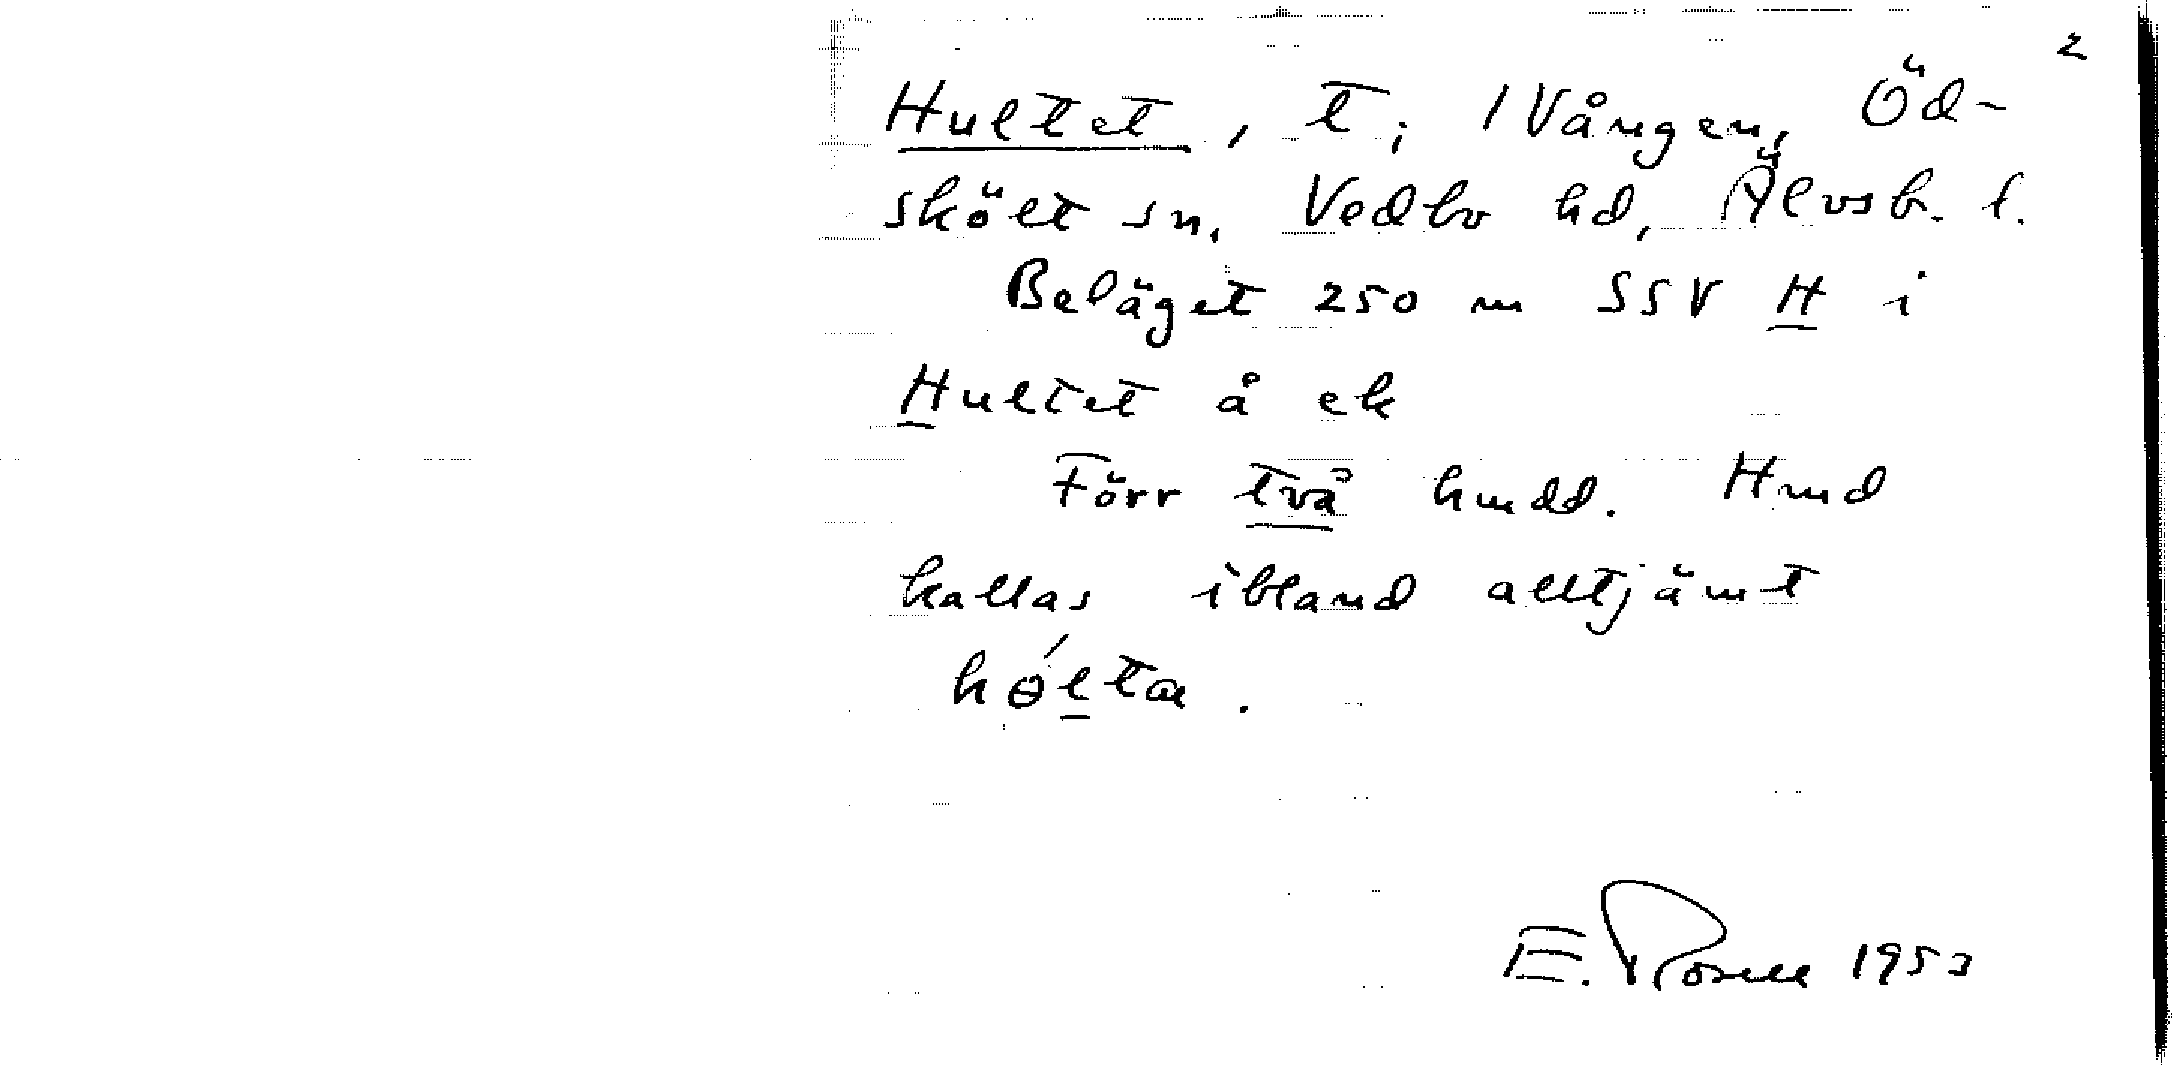 2
Hultet, t; 1 Vången, Öd-
skölt sn, Vedbo hd, Älvsb. l.
Beläget 250 m SSV H i
Hultet å ek
Förr två hmdd. Hmd
kallas ibland alltjämt
hǿltæ.
E. Rosell 1953